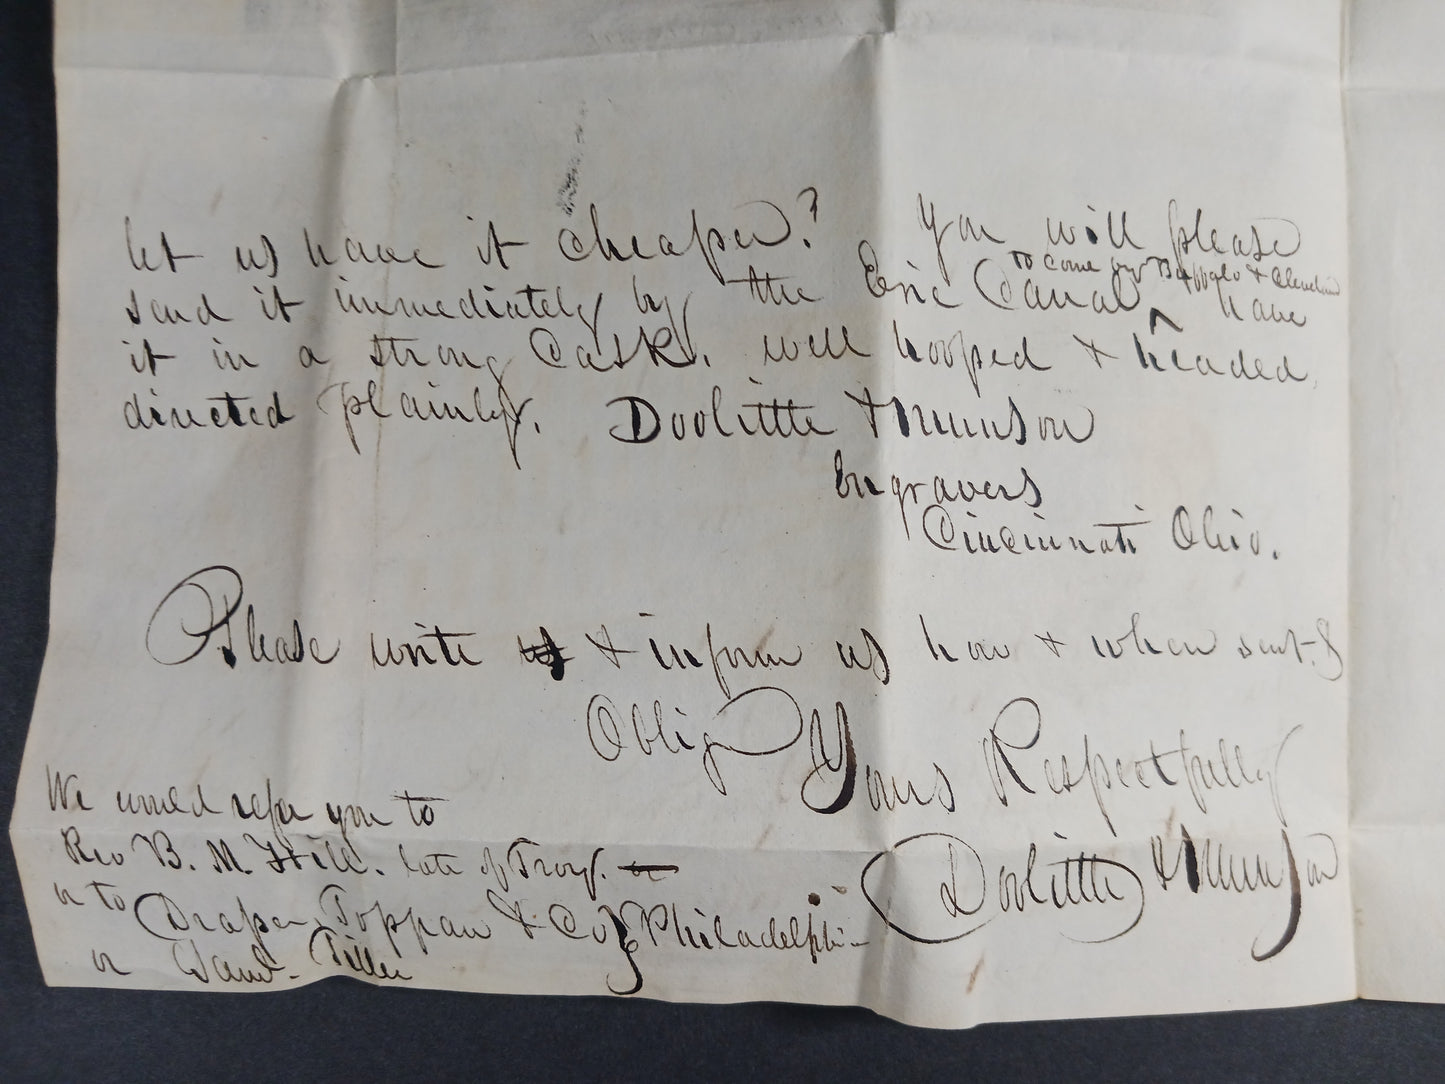 let us have it cheaper? You will please
to come by Buffalo & Cleveland
send it immediately by the Erie Canal ^ have
it in a strong Cask, well hooped & headed,
directed plainly. Doolittle & Munson
Engravers
Cincinnati Ohio.
Please write & inform us how & when sent. &
Oblig
Yours Respectfully
Doolittle & Munson
We would refer you to
Rev B. M. Hill. late of Troy. or
or to Draper, Toppan & Co Philadelphia
or Saml. Tiller